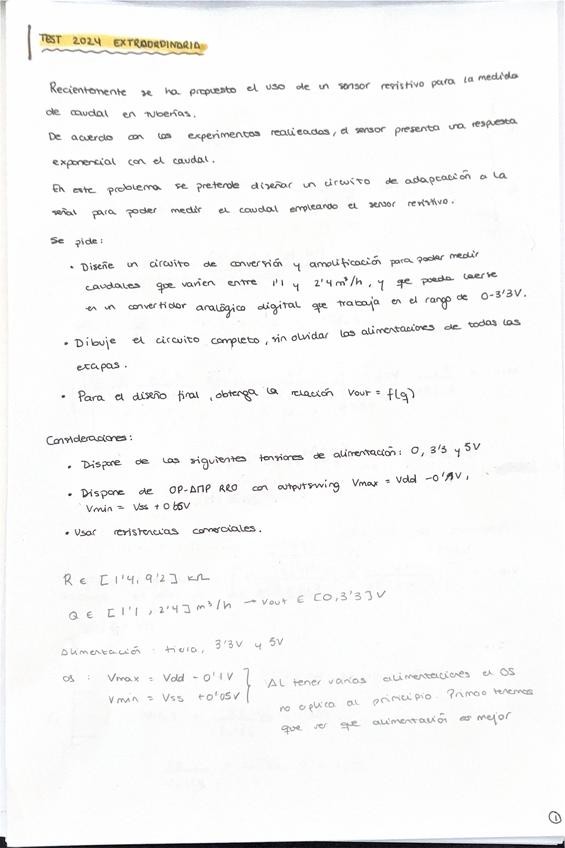 TEST 2024 EXTRAORDINARIA
Recientemente se ha propuesto el uso de un sensor resistivo para la medida
de caudal en tuberías.
De acuerdo con los experimentos realizados, el sensor presenta una respuesta
exponencial con el caudal.
En este problema se pretende diseñar un circuito de adaptación a la
señal para poder medir el caudal empleando el sensor resistivo.
Se pide:
• Diseñe un circuito de conversión y amplificación para poder medir
caudales que varíen entre 1'1 y 2'4 m³/h, y que pueda leerse
en un convertidor analógico digital que trabaja en el rango de 0-3'3V.
• Dibuje el circuito completo, sin olvidar las alimentaciones de todas las
etapas.
• Para el diseño final, obtenga la relación Vout = f(q)
Consideraciones:
• Dispone de las siguientes tensiones de alimentación: 0, 3'3 y 5V
• Dispone de OP-AMP RRO con outputswing Vmax = Vdd -0'1V,
Vmin = Vss +
• Usar resistencias comerciales.
R ∈ [1'4, 9'2] kΩ
Q ∈ [1'1, 2'4] m³/h → Vout ∈ [0,3'3] V
Alimentación: tierra, 3'3V y 5V
OS: Vmax = Vdd - 0'1V } Al tener varias alimentaciones el OS
Vmin = Vss +0'05V } no aplica al principio. Primero tenemos
que ver que alimentación es mejor
1